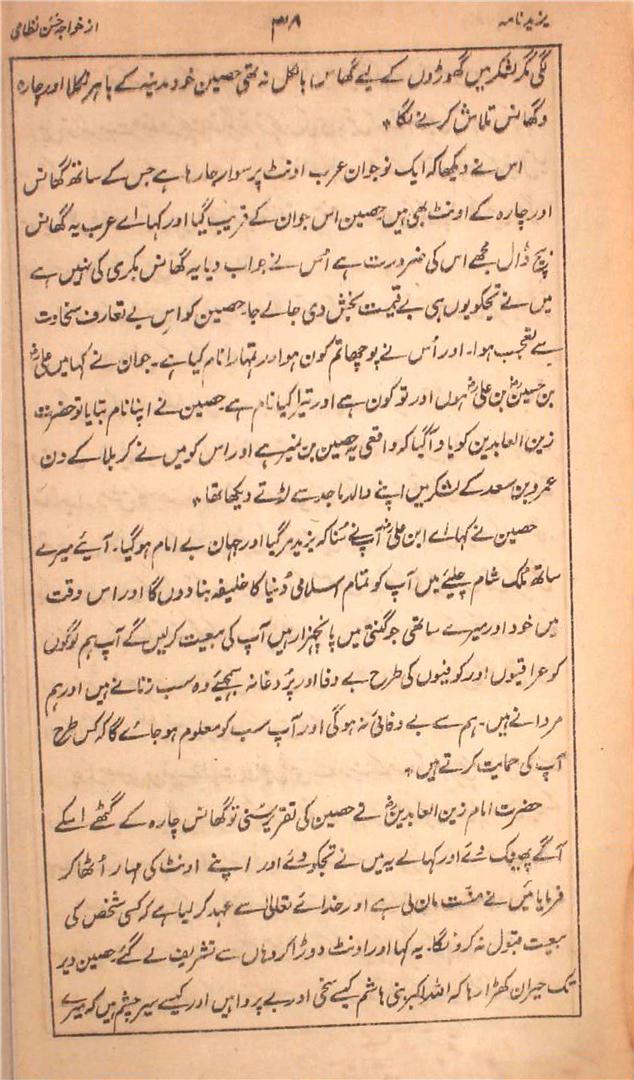 یزید نامہ
۳۸
از خواجہ حسن نظامی
گی مگر لشکر میں گھوڑوں کے لیے گھاس بالکل نہ تھی حصین خود مدینہ کے باہر نکلا اور چارہ
وگھانس تلاش کرنے لگا۔
اس نے دیکھا کہ ایک نوجوان عرب اونٹ پر سوار جارہا ہے جس کے ساتھ گھانس
اور چارہ کے اونٹ بھی ہیں حصین اس جوان کے قریب گیا اور کہا اے عرب یہ گھانس
بیچ ڈال مجھے اس کی ضرورت ہے اُس نے جواب دیا یہ گھانس بکری کی نہیں ہے
میں نے تجکو یوں ہی بے قیمت بخش دی جا لے جا۔ حصین کو اس بے تعارف سخاوت
سے تعجب ہوا۔ اور اُس نے پوچھا تم کون ہو اور تمہارا نام کیا ہے۔ جوان نے کہا میں علیؓ
بن حسینؓ بن علیؓ ہوں اور تو کون ہے اور تیرا کیا نام ہے۔ حصین نے اپنا نام بتایا تو حضرت
زین العابدین کو یاد آگیا کہ واقعی یہ حصین بن نمیر ہے اور اس کو میں نے کربلا کے دن
عمرو بن سعد کے لشکر میں اپنے والد ماجد سے لڑتے دیکھا تھا۔
حصین نے کہا اے ابن علیؓ آپنے سُنا کہ یزید مر گیا اور جہان بے امام ہو گیا۔ آیئے میرے
ساتھ ملک شام چلیئے میں آپ کو تمام اسلامی دُنیا کا خلیفہ بنا دوں گا اور اس وقت
میں خود اور میرے ساتھی جو گنتی میں پانچہزار ہیں آپ کی بیعت کرلیں گے آپ ہم لوگوں
کو عراقیوں اور کوفیوں کی طرح بے وفا اور پُر دغا نہ سمجھیے وہ سب زنانے ہیں اور ہم
مردانے ہیں۔ ہم سے بے وفائی نہ ہوگی اور آپ سب کو معلوم ہو جائے گا کہ کس طرح
آپ کی حمایت کرتے ہیں۔
حضرت امام زین العابدینؓ نے حصین کی تقریر سُنی تو گھانس چارہ کے گٹھے اسکے
آگے پھینک دئے اور کہا لے یہ میں نے تجکو دئے اور اپنے اونٹ کی مہار اُٹھا کر
فرمایا میں نے منّت مان لی ہے اور خدائے تعالیٰ سے عہد کر لیا ہے کہ کسی شخص کی
بیعت قبول نہ کرونگا۔ یہ کہا اور اونٹ دوڑا کر وہاں سے تشریف لے گئے۔ حصین دیر
تک حیران کھڑا رہا کہ اللہ اکبر بنی ہاشم کیسے سخی اور بے پروا ہیں اور کیسے سیر چشم ہیں کہ میرے